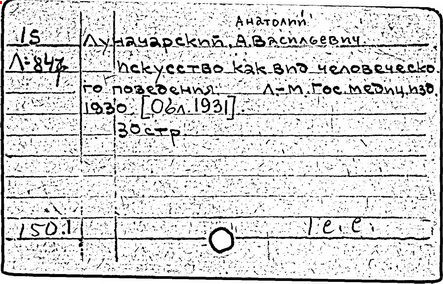 Анатолий
15 Луначарский, А.Васильевич.
Л-847 Искусство как вид человеческо
го поведения. Л-М. Гос.медиц.изд.
1930 [Обл.1931].
30стр.
1501 1 е.е.